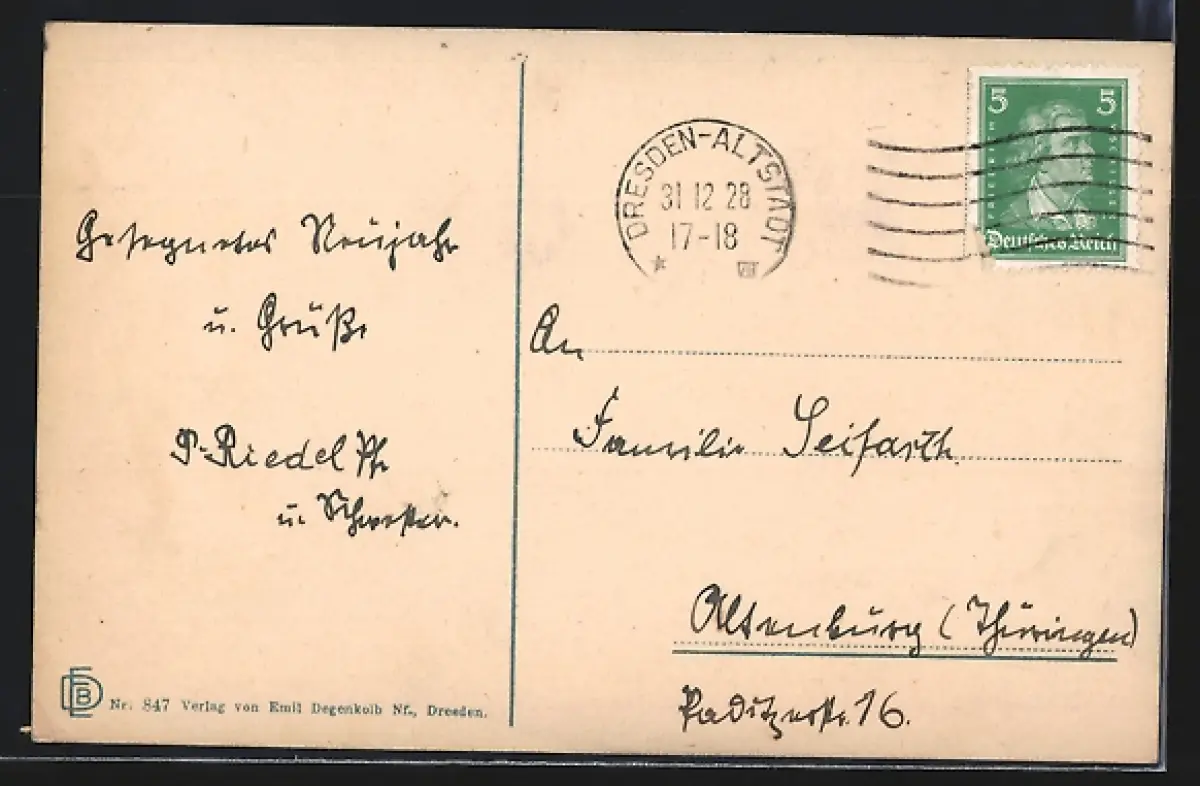 Gesegnetes Neujahr
u. Grüße
P. Riedel Pf.
u. Schwester.
DEB Nr. 847 Verlag von Emil Degenkolb Nf., Dresden.
DRESDEN-ALTSTADT
31 12 28
17-18
5 5
Deutsches Reich
An
Familie Seifarth
Altenburg (Thüringen)
Paditzerstr. 16.